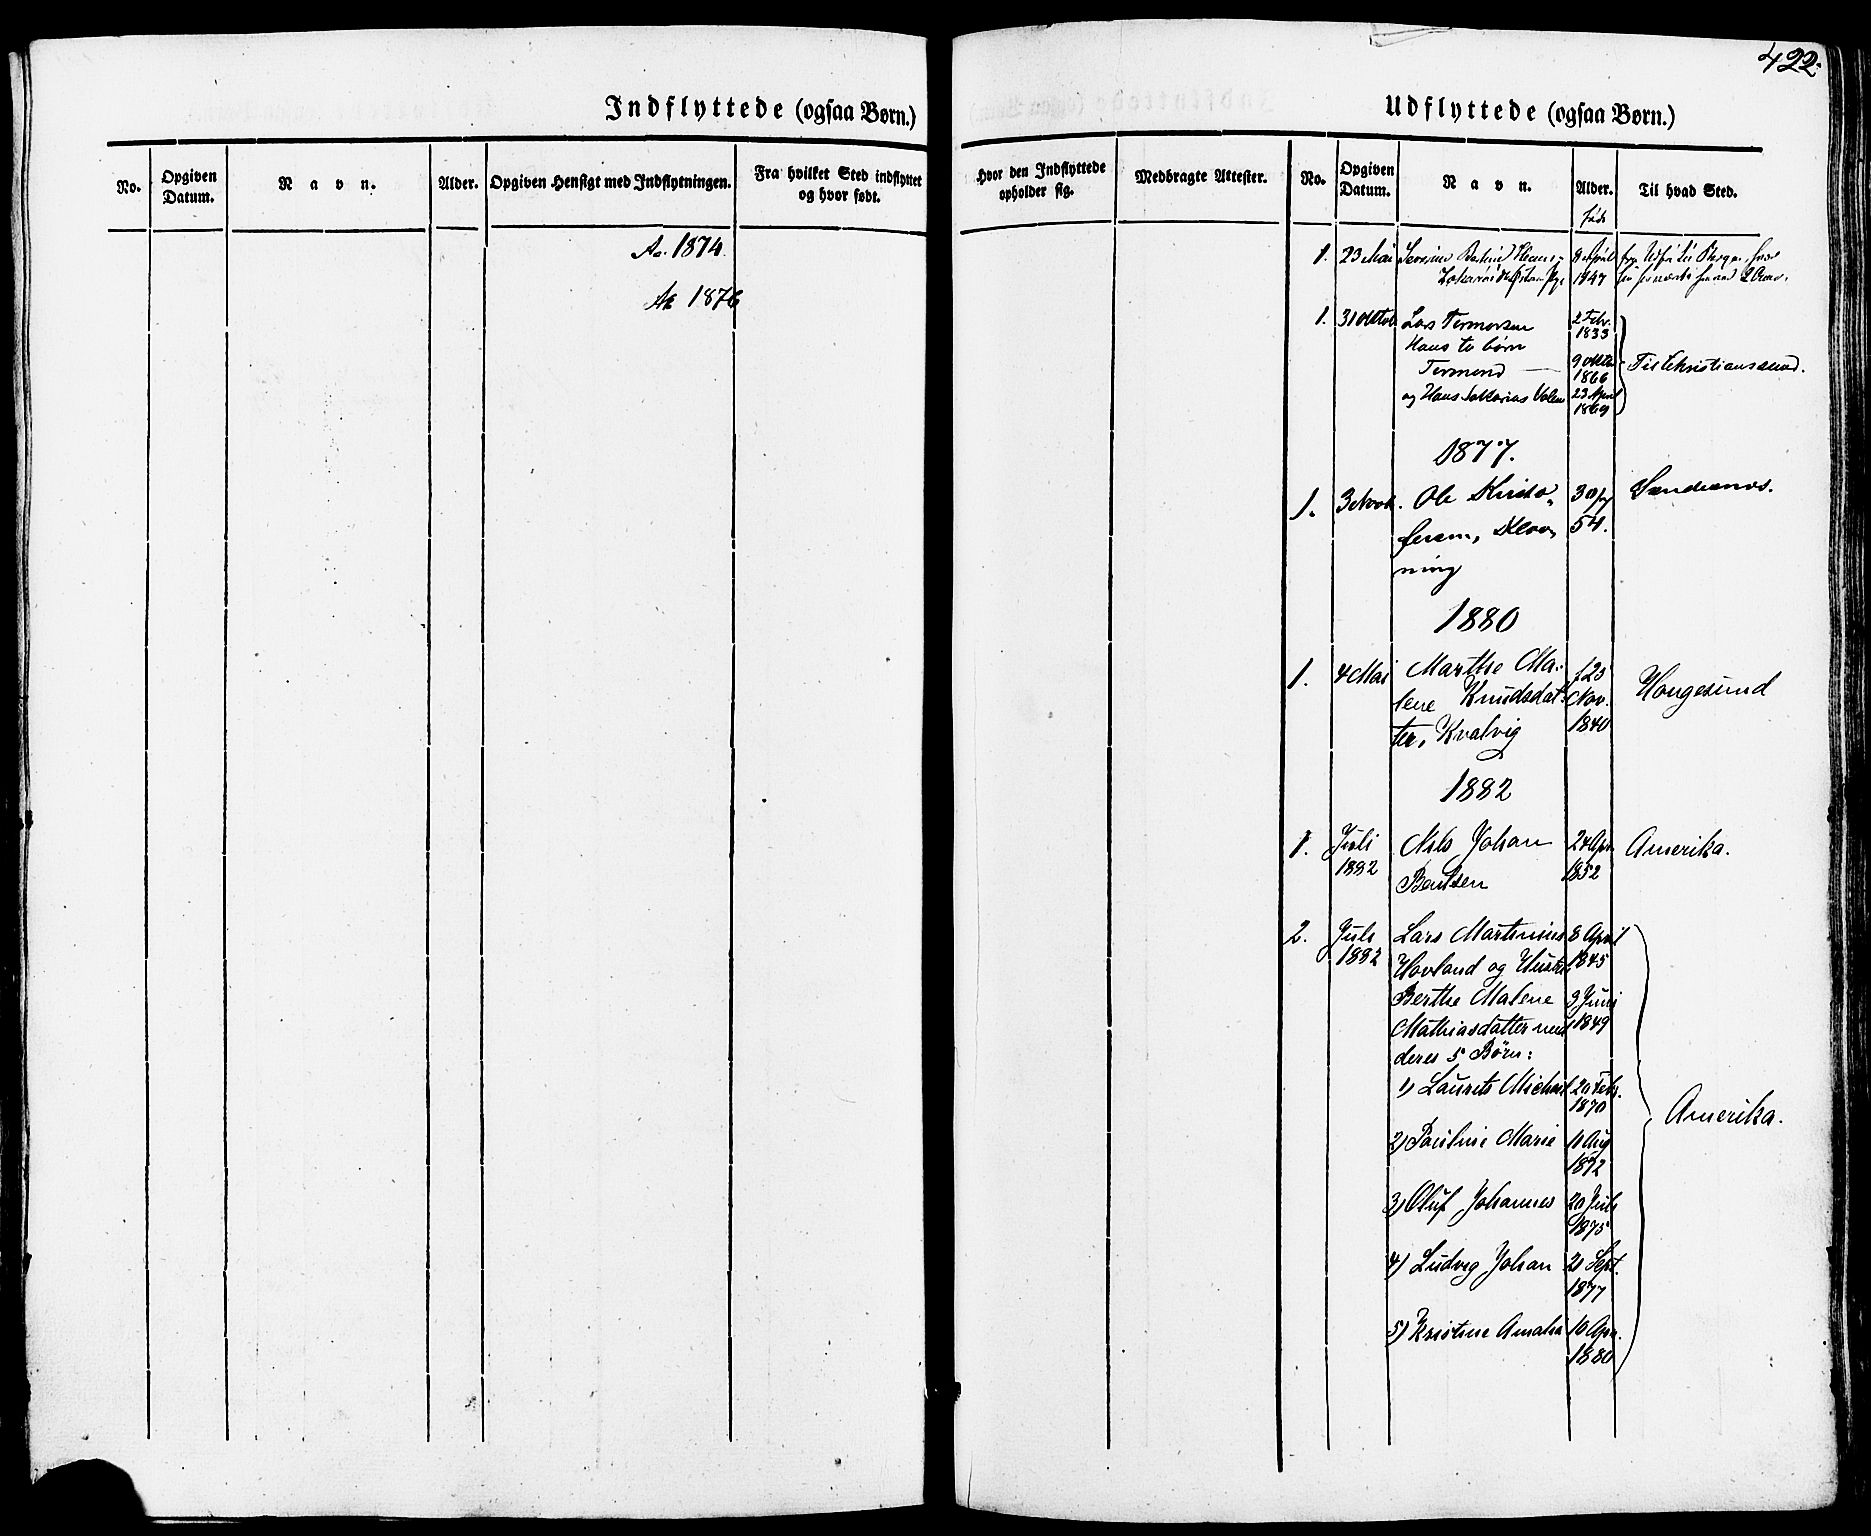 422.
Indflyttede (ogsaa Børn.)
Udflyttede (ogsaa Børn.)
No.
Opgiven Datum.
Navn.
Alder.
Opgiven Hensigt med Indflytningen.
Fra hvilket Sted indflyttet og hvor født.
Hvor den Indflyttede opholder sig.
Medbragte Attester.
No.
Opgiven Datum.
Navn.
Alder.
Til hvad Sted.
født
Aa. 1874.
1. 23 Mai
8 April
1847
Aa 1876
1. 31 oktob Lars Tormorsen 2 Febr. 1833
Hans to børn
Tormond 9 oktb 1866
og Hans Sakarias Valen 23 April 1869
Til Christianssund.
1877.
1. 3 Novb. Ole Kristo-
fersen,
ning
54.
1880
1. 4 Mai Marthe Ma- f 25 Haugesund
lene Knudsdat- Nov.
ter, Kvalvig 1840
1882
1. Juli Nils Johan 24 Apr. Amerika.
1882 Bentsen 1852
2. Juli Lars Martinius 8 April
1882 Hovland og Hustru 1845
Berthe Malene 9 Juni
Mathiasdatter med 1849
deres 5 Børn:
1) Laurits Michael 20 Febr.
1870
Amerika.
2) Pauline Marie 11 Aug
1872
3) Oluf Johannes 20 Juli
1875
4) Ludvig Johan 21 Sept.
1877
5) Kristine Amalia 10 Apr.
1880